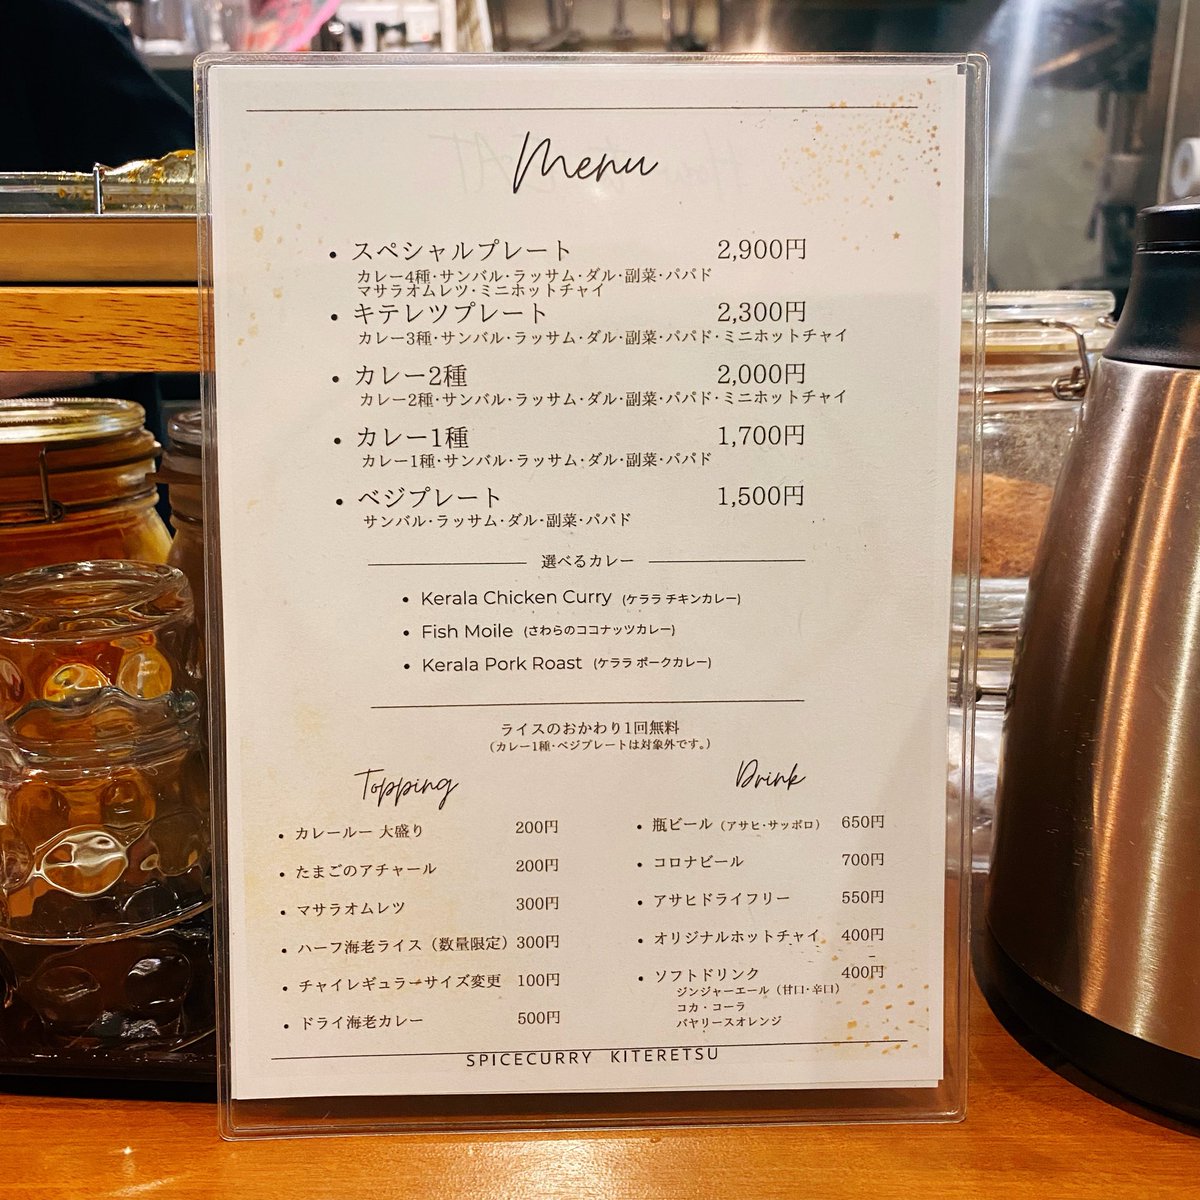 Menu
・スペシャルプレート 2,900円
カレー4種･サンバル･ラッサム･ダル･副菜･パパド
マサラオムレツ･ミニホットチャイ
・キテレツプレート 2,300円
カレー3種･サンバル･ラッサム･ダル･副菜･パパド･ミニホットチャイ
・カレー2種 2,000円
カレー2種･サンバル･ラッサム･ダル･副菜･パパド･ミニホットチャイ
・カレー1種 1,700円
カレー1種･サンバル･ラッサム･ダル･副菜･パパド
・ベジプレート 1,500円
サンバル･ラッサム･ダル･副菜･パパド
選べるカレー
・Kerala Chicken Curry (ケララ チキンカレー)
・Fish Moile (さわらのココナッツカレー)
・Kerala Pork Roast (ケララ ポークカレー)
ライスのおかわり1回無料
(カレー1種･ベジプレートは対象外です。)
Topping
・カレールー 大盛り 200円
・たまごのアチャール 200円
・マサラオムレツ 300円
・ハーフ海老ライス（数量限定）300円
・チャイレギュラーサイズ変更 100円
・ドライ海老カレー 500円
Drink
・瓶ビール（アサヒ･サッポロ） 650円
・コロナビール 700円
・アサヒドライフリー 550円
・オリジナルホットチャイ 400円
・ソフトドリンク 400円
ジンジャーエール（甘口･辛口）
コカ・コーラ
バヤリースオレンジ
SPICECURRY KITERETSU